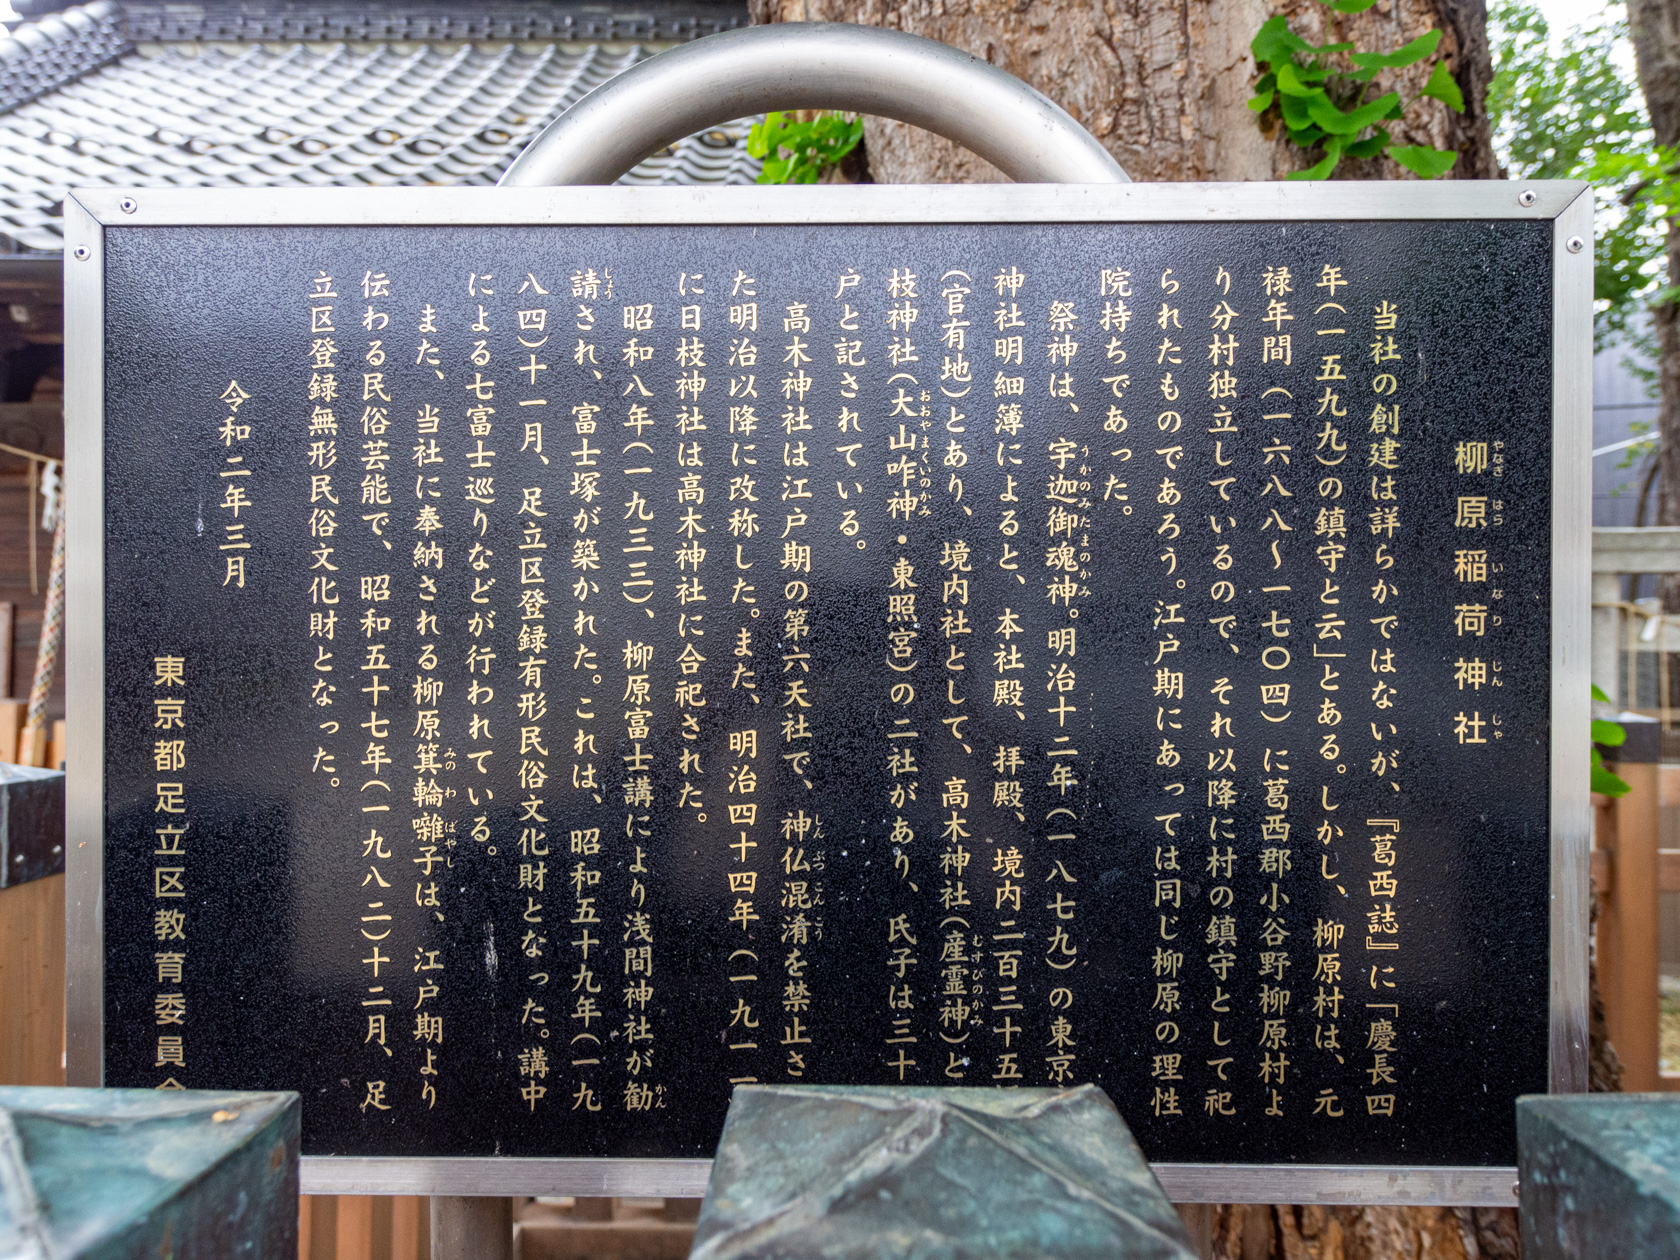 柳原稲荷神社
やなぎ はら いなり じん じゃ
当社の創建は詳らかではないが、『葛西誌』に「慶長四
年(一五九九)の鎮守と云」とある。しかし、柳原村は、元
禄年間(一六八八〜一七〇四)に葛西郡小谷野柳原村よ
り分村独立しているので、それ以降に村の鎮守として祀
られたものであろう。江戸期にあっては同じ柳原の理性
院持ちであった。
祭神は、宇迦御魂神。明治十二年(一八七九)の東京
うかのみたまのかみ
神社明細簿によると、本社殿、拝殿、境内二百三十五
(官有地)とあり、境内社として、高木神社(産霊神)と
むすびのかみ
枝神社(大山咋神・東照宮)の二社があり、氏子は三十
おおやまくいのかみ
戸と記されている。
高木神社は江戸期の第六天社で、神仏混淆を禁止さ
しんぶつこんこう
た明治以降に改称した。また、明治四十四年(一九一
に日枝神社は高木神社に合祀された。
昭和八年(一九三三)、柳原富士講により浅間神社が勧
かん
請され、富士塚が築かれた。これは、昭和五十九年(一九
じょう
八四)十一月、足立区登録有形民俗文化財となった。講中
による七富士巡りなどが行われている。
また、当社に奉納される柳原箕輪囃子は、江戸期より
みの わ ばやし
伝わる民俗芸能で、昭和五十七年(一九八二)十二月、足
立区登録無形民俗文化財となった。
令和二年三月
東京都足立区教育委員